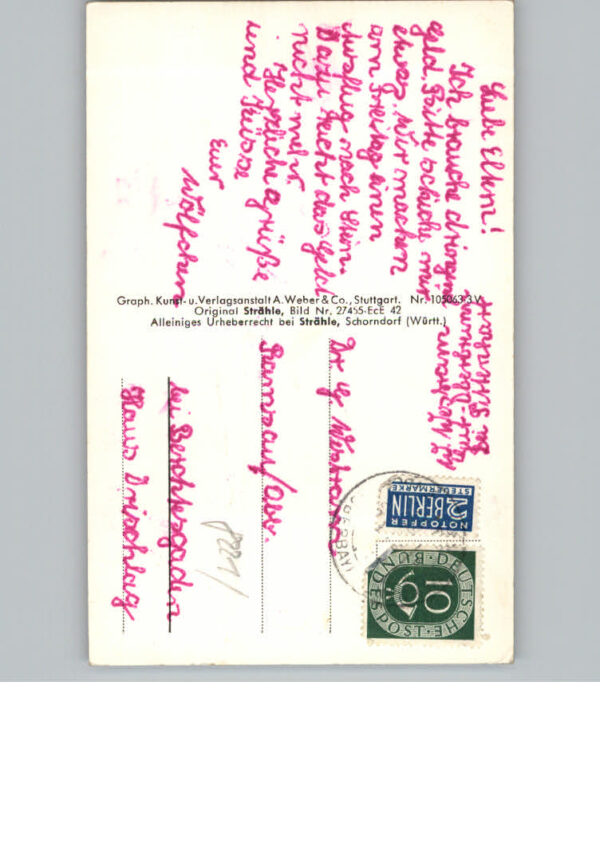 Liebe Eltern!
Ich brauche dringend
Geld. Bitte schicke mir
etwas. Wir machen
am Freitag einen
Ausflug nach
Dazu reicht das Geld
nicht mehr.
Herzliche Grüße
und Küsse
Euer
Wölfchen
Graph. Kunst- u. Verlagsanstalt A. Weber & Co., Stuttgart. Nr. 105063 3 V.
Original Strähle, Bild Nr. 27455-EcE 42
Alleiniges Urheberrecht bei Strähle, Schorndorf (Württ.)
NOTOPFER
2 BERLIN
STEUERMARKE
DEUTSCHE BUNDESPOST
10
Dr. G.
Ramsau/Obb.
bei Berchtesgaden
Haus